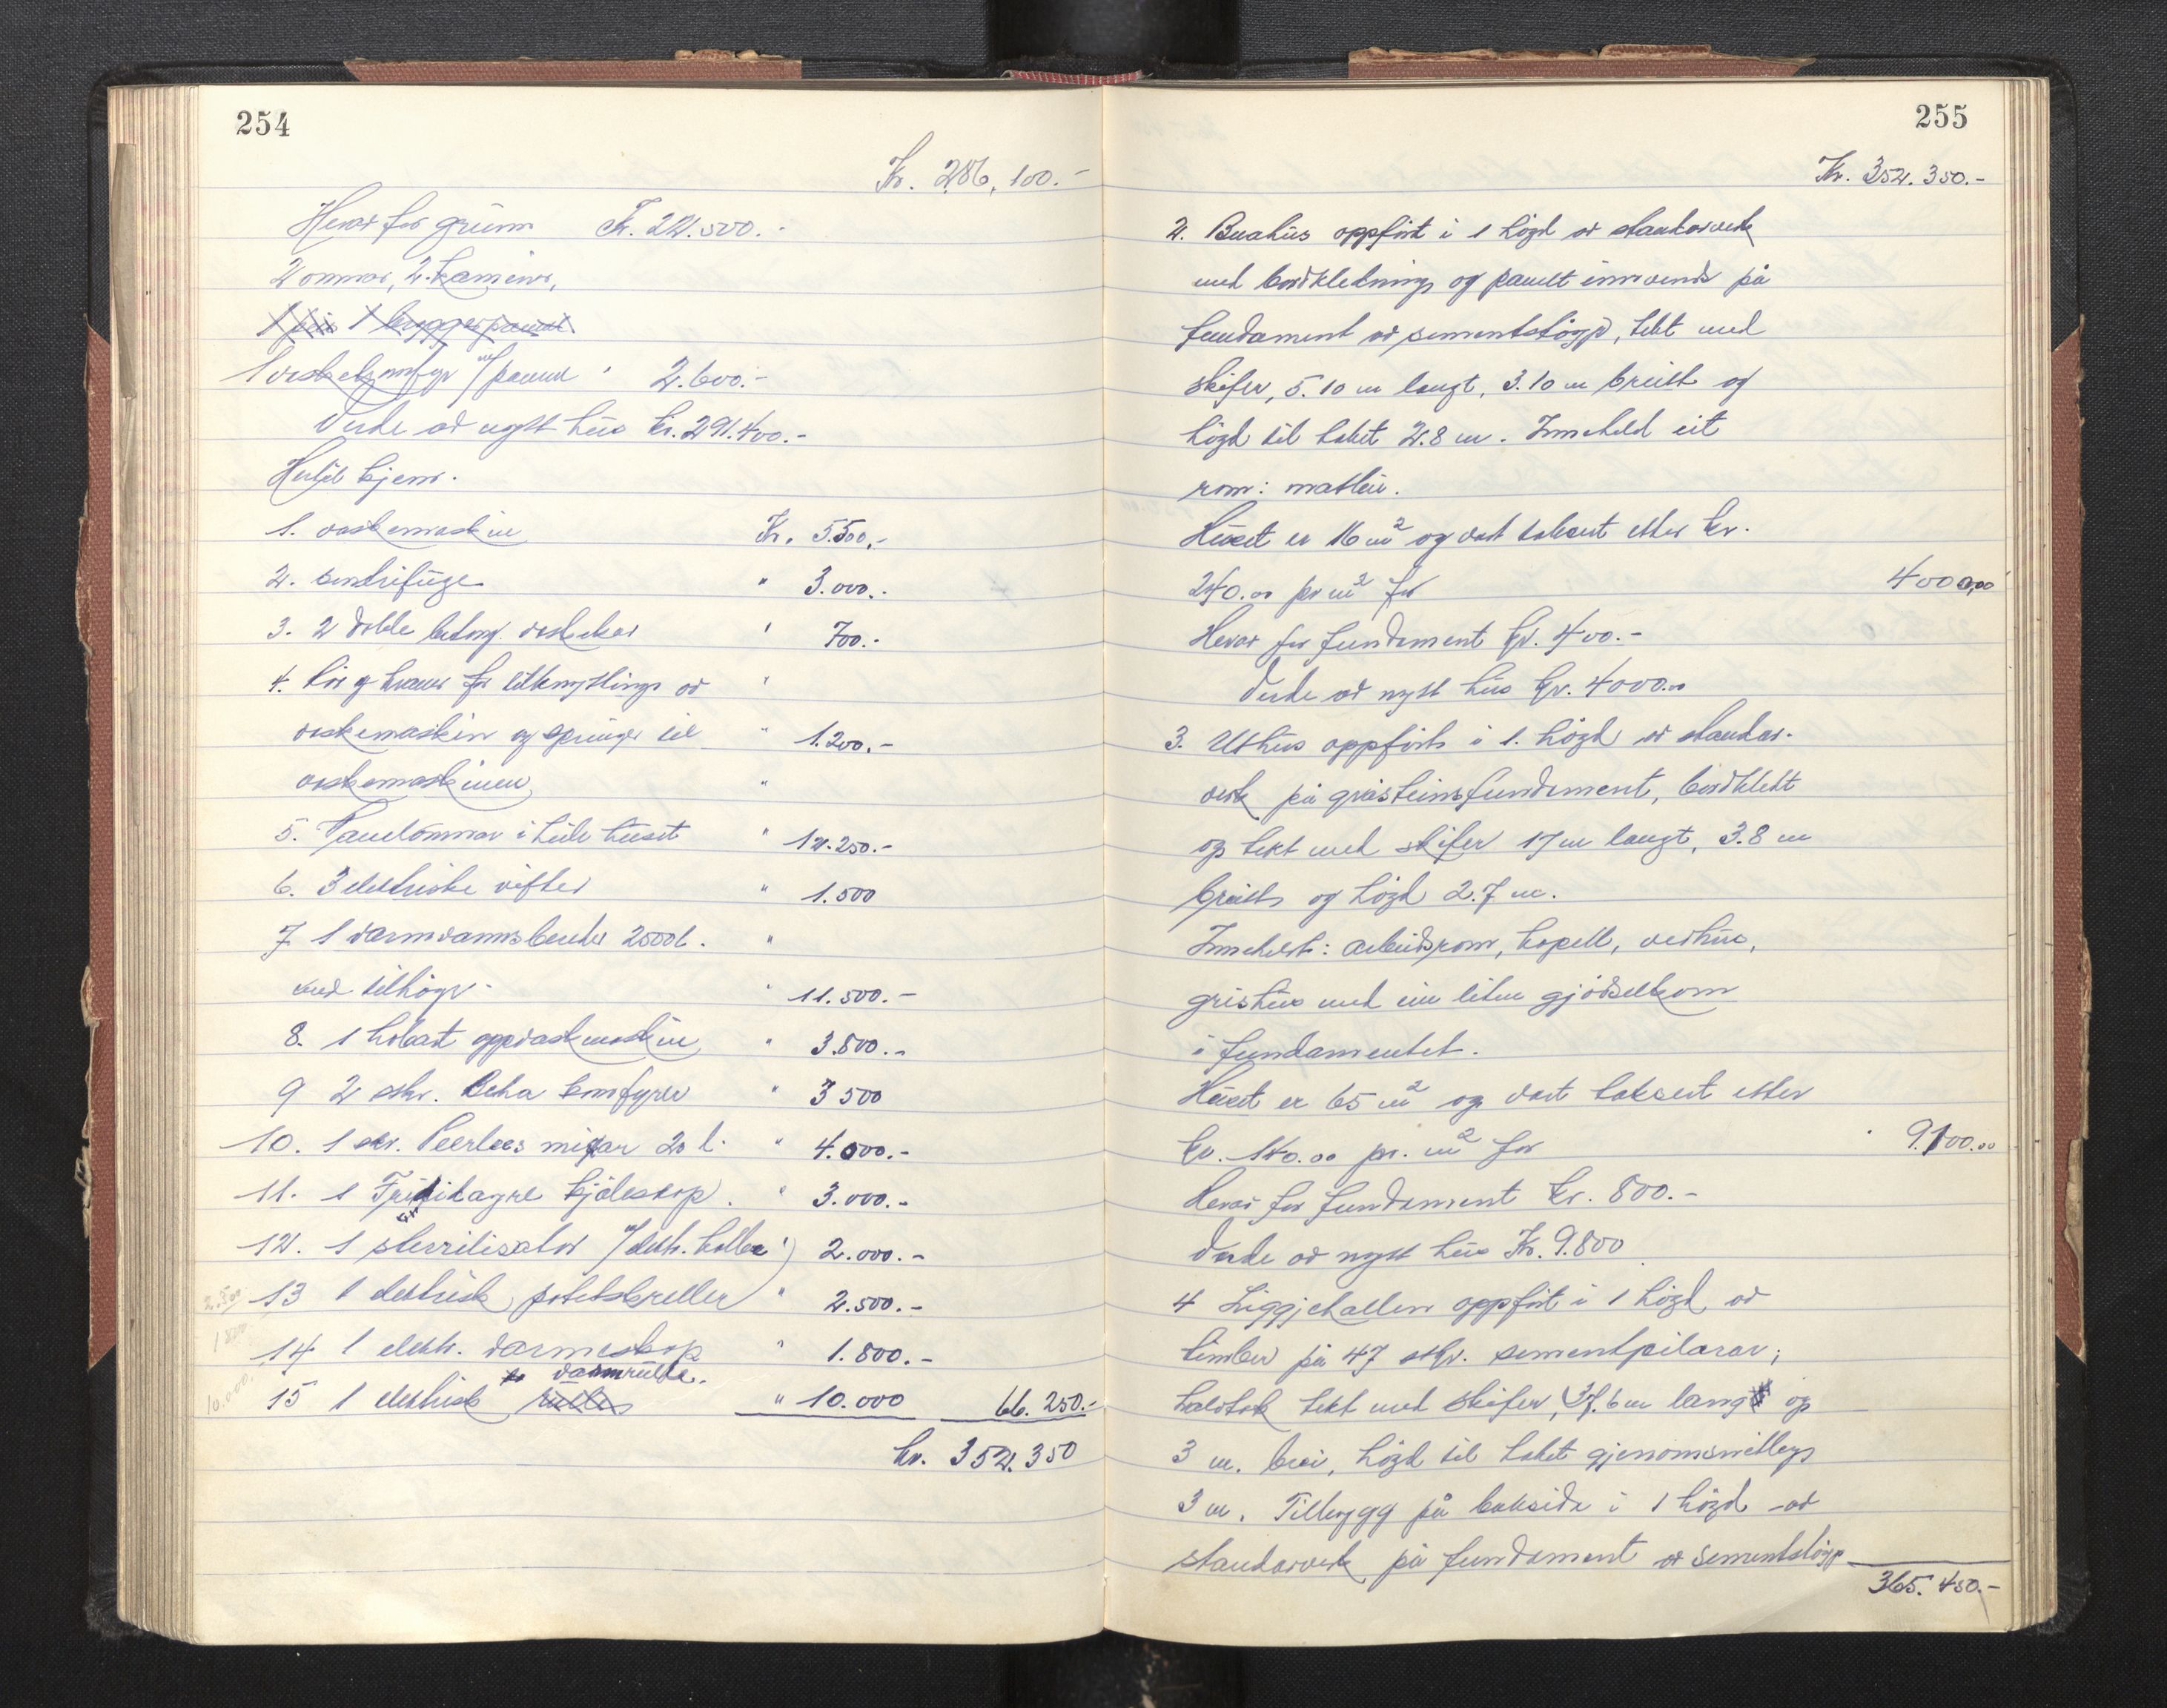 254
Kr. 286.100.-
Herav for grunn Kr. 22.500.-
2 omnar, 2. kaminar,
1 vaskekomfyr m/panne " 2.600.-
Verde av nytt hus kr. 291.400.-
Hertil kjem.
1. vaskemaskin Kr. 5.500.-
2. sentrifuge " 3.000.-
3. 2 doble betong. vaskekar " 700.-
4. rør og kraner for tilknytting av "
vaskemaskin og spring til " 1.200.-
vaskemaskinen "
5. Panelomnar i heile huset " 12.250.-
6. 3 elektriske vifter " 1.500
7. 1 varmvannsbereder 2500 l. "
med tilhøyr. " 11.500.-
8. 1 hobart oppvaskmaskin " 3.800.-
9 2 stk. Beha komfyrer " 3 500
10. 1 stk. Peerless mixar 20 l. " 4.000.-
11. 1 Frigidaire kjøleskap. " 3.000.-
12. 1 sterilisator m/elektr. kolbe " 2.000.-
13 1 elektrisk potetskreller " 2.500.-
14 1 elektr. varmeskap " 1.800.-
varmrulle.
15 1 elektrisk rulle " 10.000 66.250.-
kr. 352.350
2.500
1800
10.000.
255
Kr. 352.350.-
2. Buahus oppført i 1 høgd av standarverk
med bordkledning og panelt innvendig på
fundament av sementstøyp, tekt med
skifer, 5.10 m langt, 3.10 m breidt og
høgd til taket 2.8 m. Inneheld eit
rom: matbu.
Huset er 16 m² og vart taksert etter kr.
240.00 pr m² for 4000,00
Herav for fundament kr. 400.-
Verde av nytt hus kr. 4000.00
3. Uthus oppført i 1. høgd av standar-
verk på gråsteinsfundament, bordkledt
og tekt med skifer 17 m langt, 3.8 m
breidt og høgd 2.7 m.
Inneheld: arbeidsrom, kapell, vedhus,
grishus med ein liten gjødselkom
i fundamentet.
Huset er 65 m² og vart taksert etter
kr. 140.00 pr. m² for " 9.100.00
Herav for fundament kr. 800.-
Verde av nytt hus Kr. 9.800
4 Liggjehallen oppført i 1 høgd av
timber på 47 stk. sementpilarar;
halvtak tekt med skifer, 37.6 m lang og
3 m. brei, høgd til taket gjenomsnittleg
3 m. Tilbygg på baksida i 1 høgd av
standarverk på fundament av sementstøyp
365.450.-